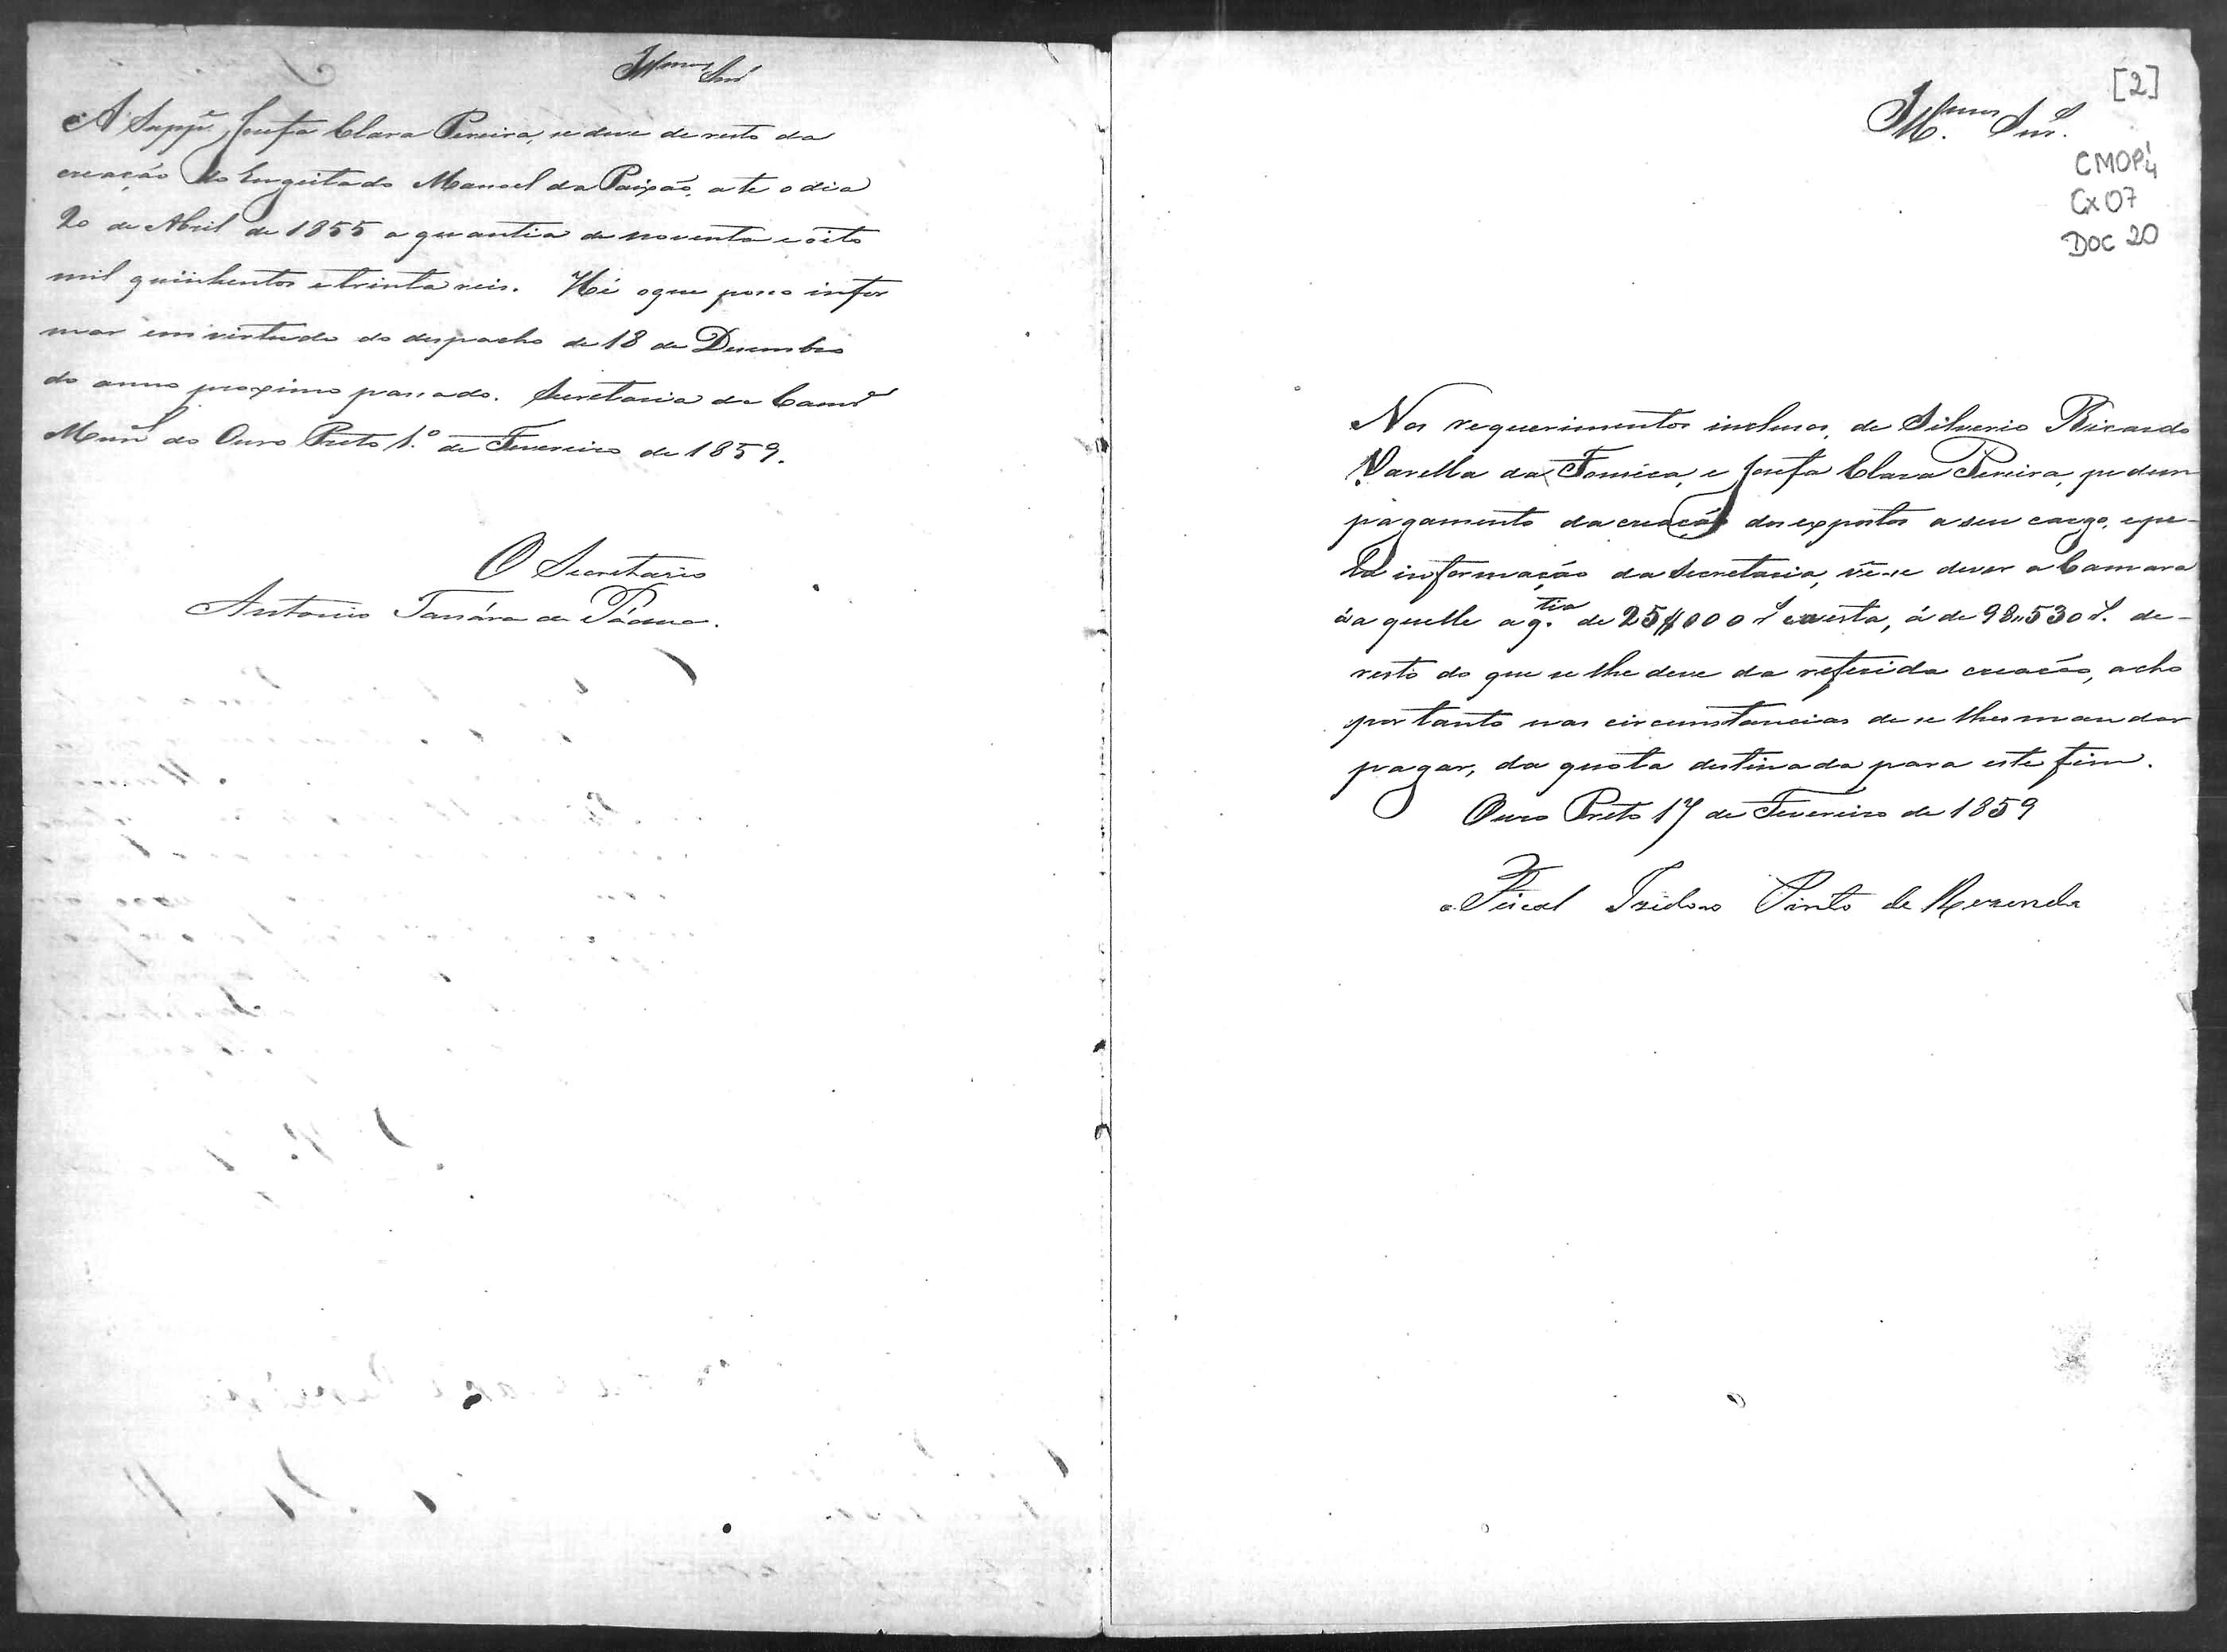 Illmos Snrs
A Suppe. Josefa Clara Pereira, se deve de resto da
creação do Engeitado Manoel da Paixão, ate o dia
20 de Abril de 1855 a quantia de noventa e oito
mil quinhentos e trinta reis. Hé o que posso infor
mar em virtude do despacho de 18 de Desembro
do anno proximo passado. Secretaria da Camra
Munl do Ouro Preto 1.º de Fevereiro de 1859.
O Secretario
Antonio de Padua.
[2]
Illmos Snrs.
CMOP
Cx 07
DOC 20
Nos requerimentos inclusos, de Silverio Ricardo
Varella da Fonseca, e Josefa Clara Pereira, pedem
pagamento da creação dos expostos a seu cargo, e pe-
la informação da Secretaria, vê-se dever a Camara
áaquelle a q.tia de 25$000 rs e a esta, á de 98"530 rs. de-
resto do que se lhe deve da referida creação, acho
por tanto nas circumstancias de se lhes mandar
pagar, da quota destinada para este fim.
Ouro Preto 17 de Fevereiro de 1859
o Fiscal Izidoro Pinto de Rezende